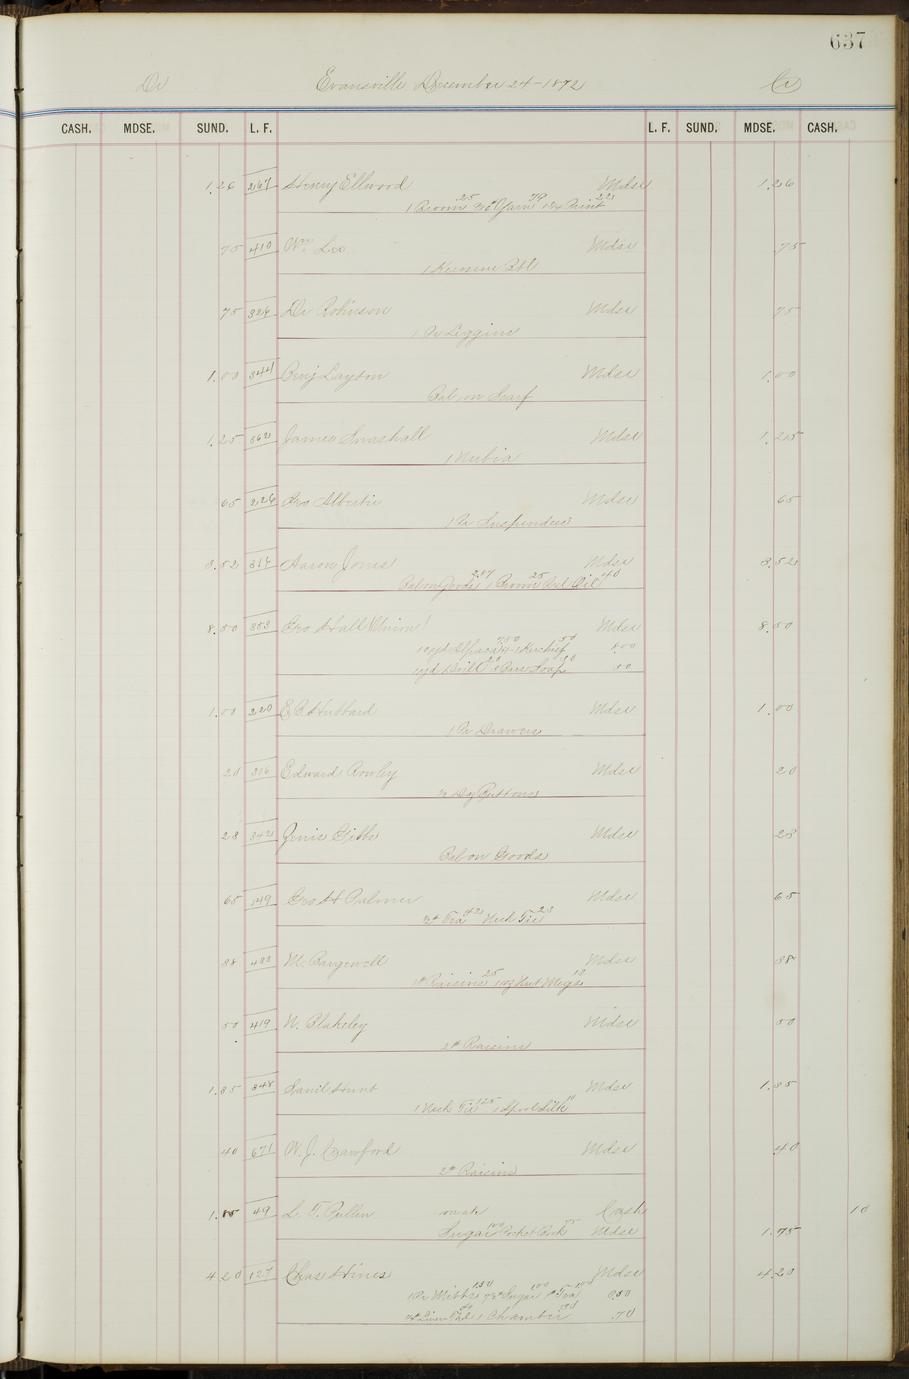 637
Dr Evansville December 24-1872 Cr
CASH. MDSE. SUND. L. F. L. F. SUND. MDSE. CASH.
1.26 267 Henry Ellwood Mdse 1.26
1 Broom 25 Yarn 79 Print 22
75 410 Wm Lee Mdse 75
75 324 Dr Robinson Mdse 75
1 Pr Leggins
1.00 344 Benj Layton Mdse 1.00
Bal on Scarf
1.25 362 James Marshall Mdse 1.25
1 Nubia
65 226 Geo Alberti Mdse 65
1 Pr Suspenders
3.52 317 Aaron Jones Mdse 3.52
Bal on Goods 287 1 Broom 25 Oil 40
8.50 353 Geo Hall (Union) Mdse 8.50
10 yd Alpaca 7.50 1 Kerchief 50 8.00
yd Drill 20 Soap 30 50
1.00 220 E. B. Hubbard Mdse 1.00
1 Pr Drawers
20 316 Edward Rowley Mdse 20
2 Dz Buttons
28 342 Jenie Gibbs Mdse 28
Bal on Goods
65 149 Geo H Palmer Mdse 65
Tea 42 Neck Tie 23
38 432 M. Mdse 38
1# Raisins 25 1 oz Nut Megs 13
50 419 N. Blakeley Mdse 50
2# Raisins
1.35 348 Danil Hunt Mdse 1.35
1 Neck Tie 125 1 Spool Silk 10
40 671 W. J. Crawford Mdse 40
2# Raisins
1.85 49 L. T. Pullen on a/c Cash 10
Sugar 100 Pocket Book 75 Mdse 1.75
4.20 127 Chas Hines Mdse 4.20
1 Pr Mitts 150 Sugar 100 1# Tea 100 3.50
1 Chamber .70